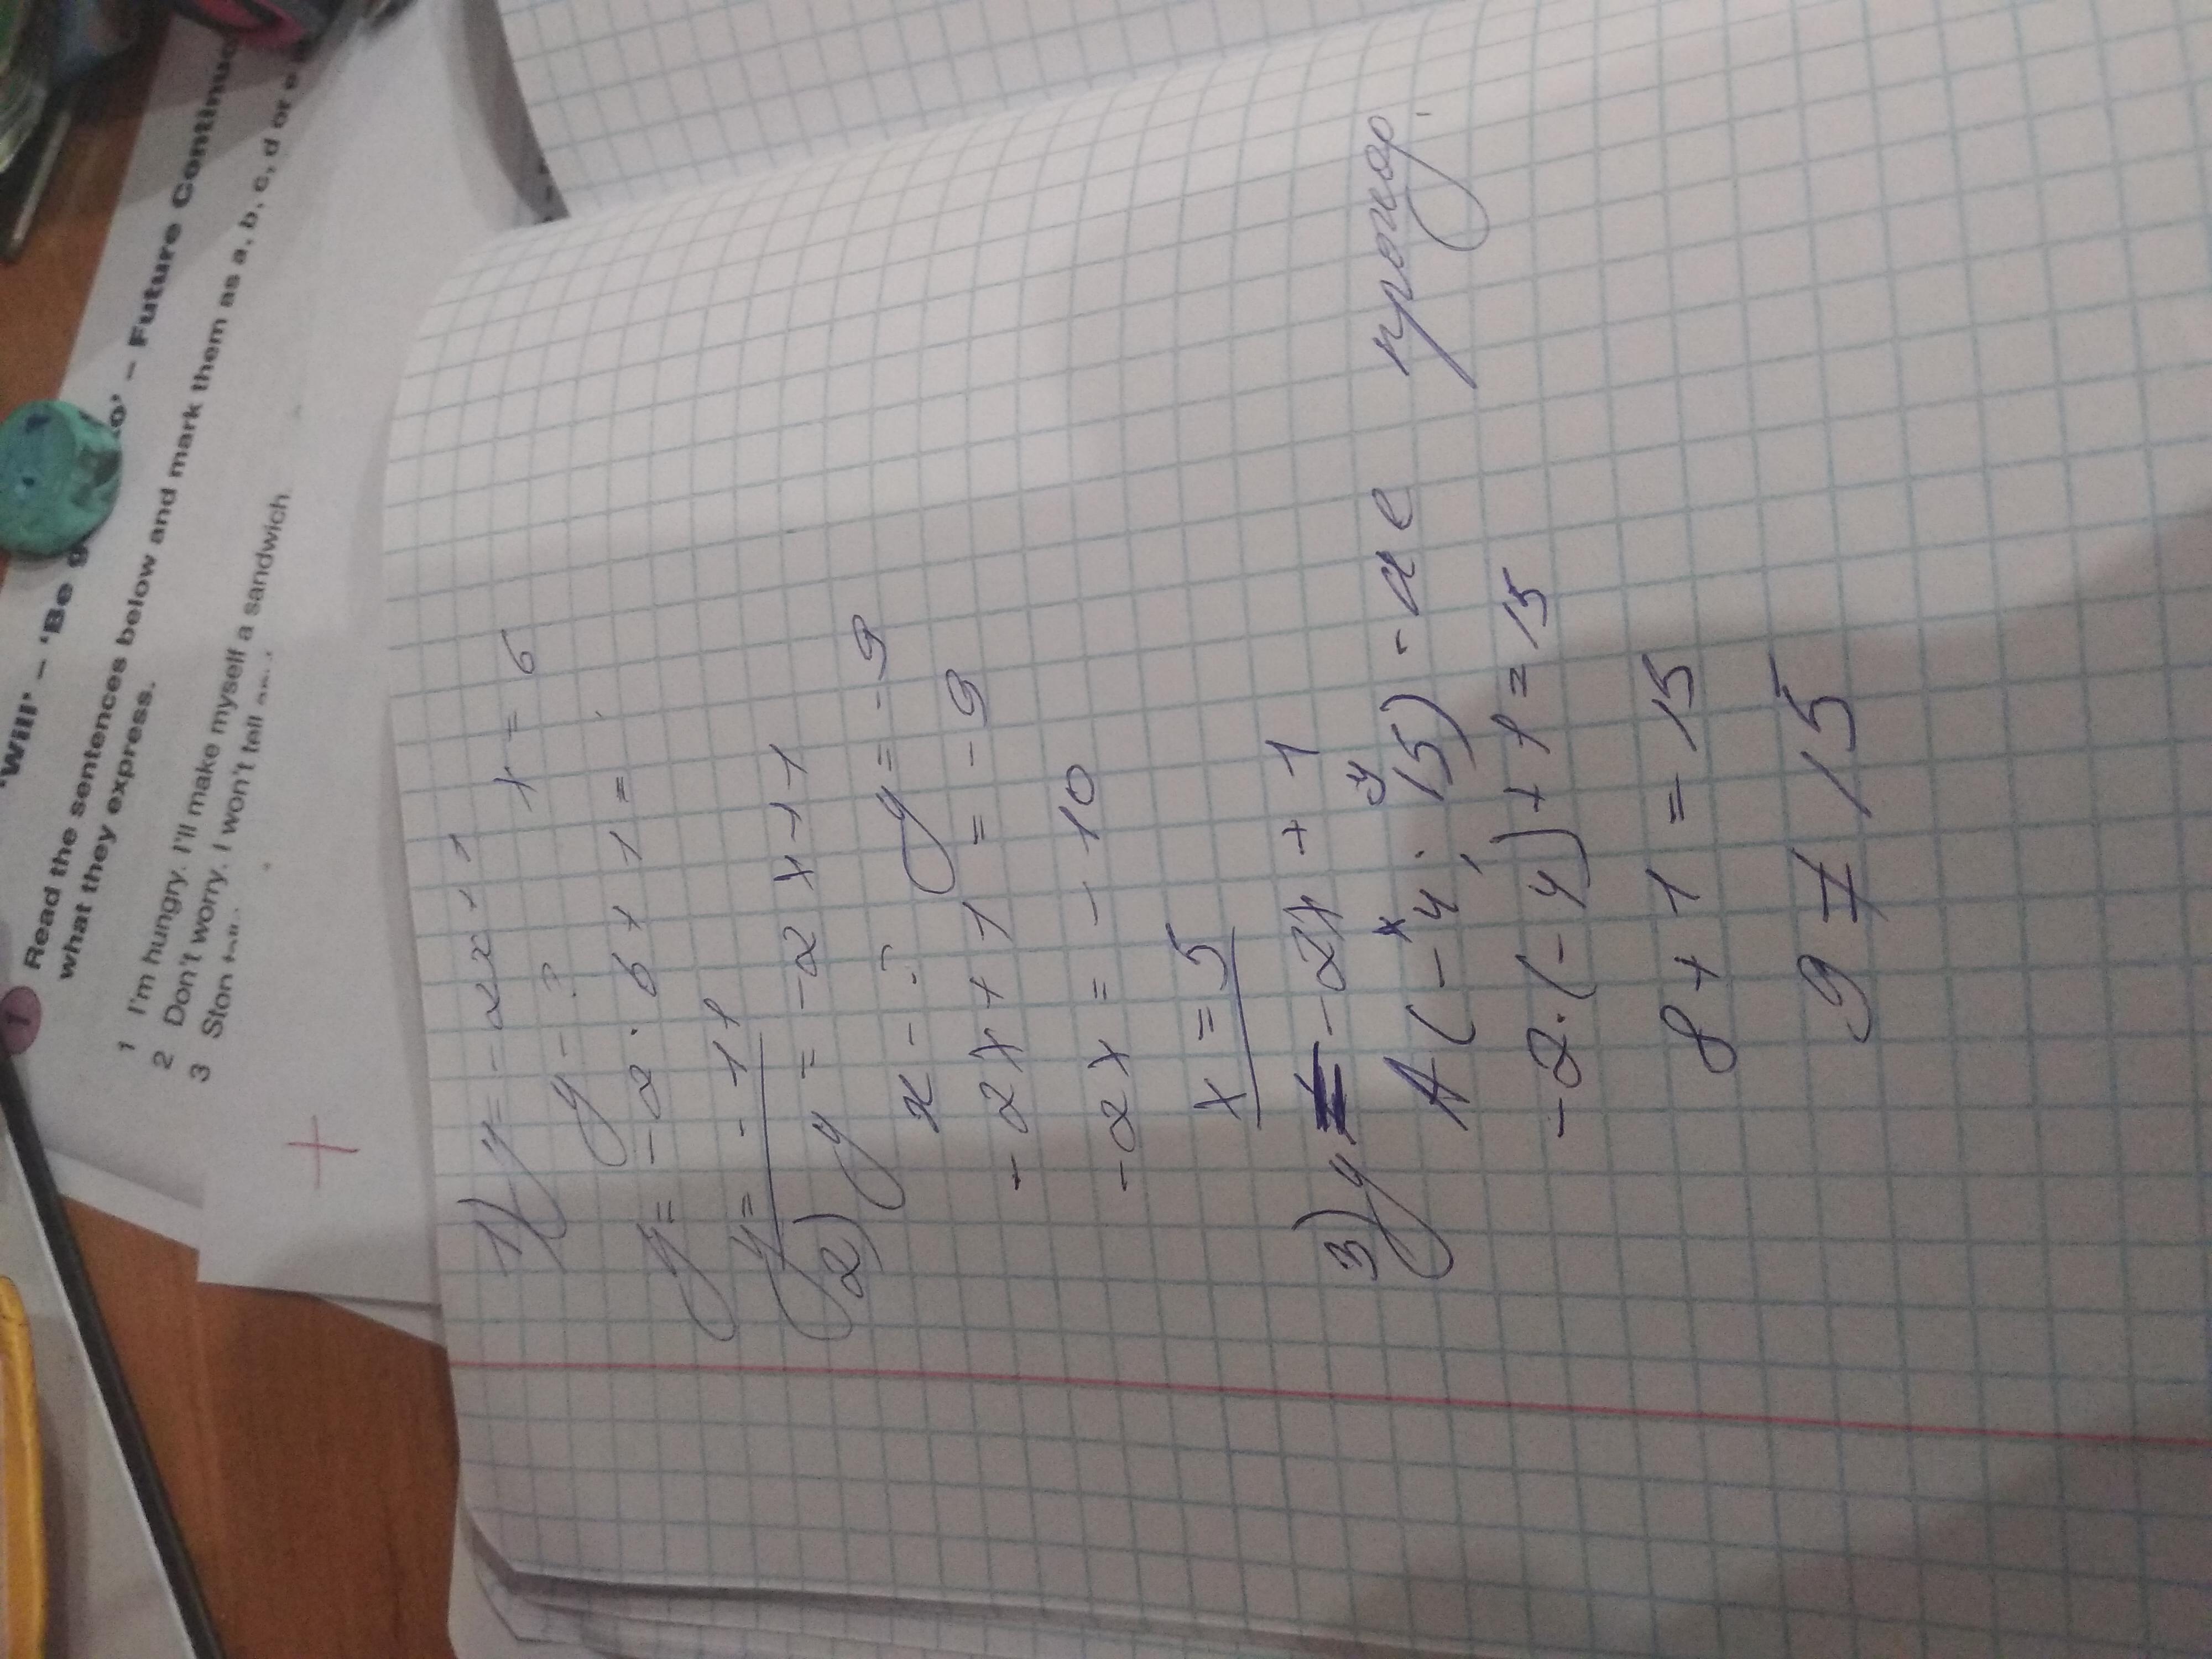 'Will' – 'Be g to' – Future Continuo
1 Read the sentences below and mark them as a, b, c, d or e
what they express.
1 I'm hungry. I'll make myself a sandwich
2 Don't worry. I won't tell
3
1) y = -2x + 1 x = 6
y - ?
y = -2 · 6 + 1 =
y = -11
2) y = -2x + 1
x - ? y = -9
-2x + 1 = -9
-2x = -10
x = 5
3) y = -2x + 1
x y
A(-4; 15) - не проход.
-2 · (-4) + 1 = 15
8 + 1 = 15
9 ≠ 15